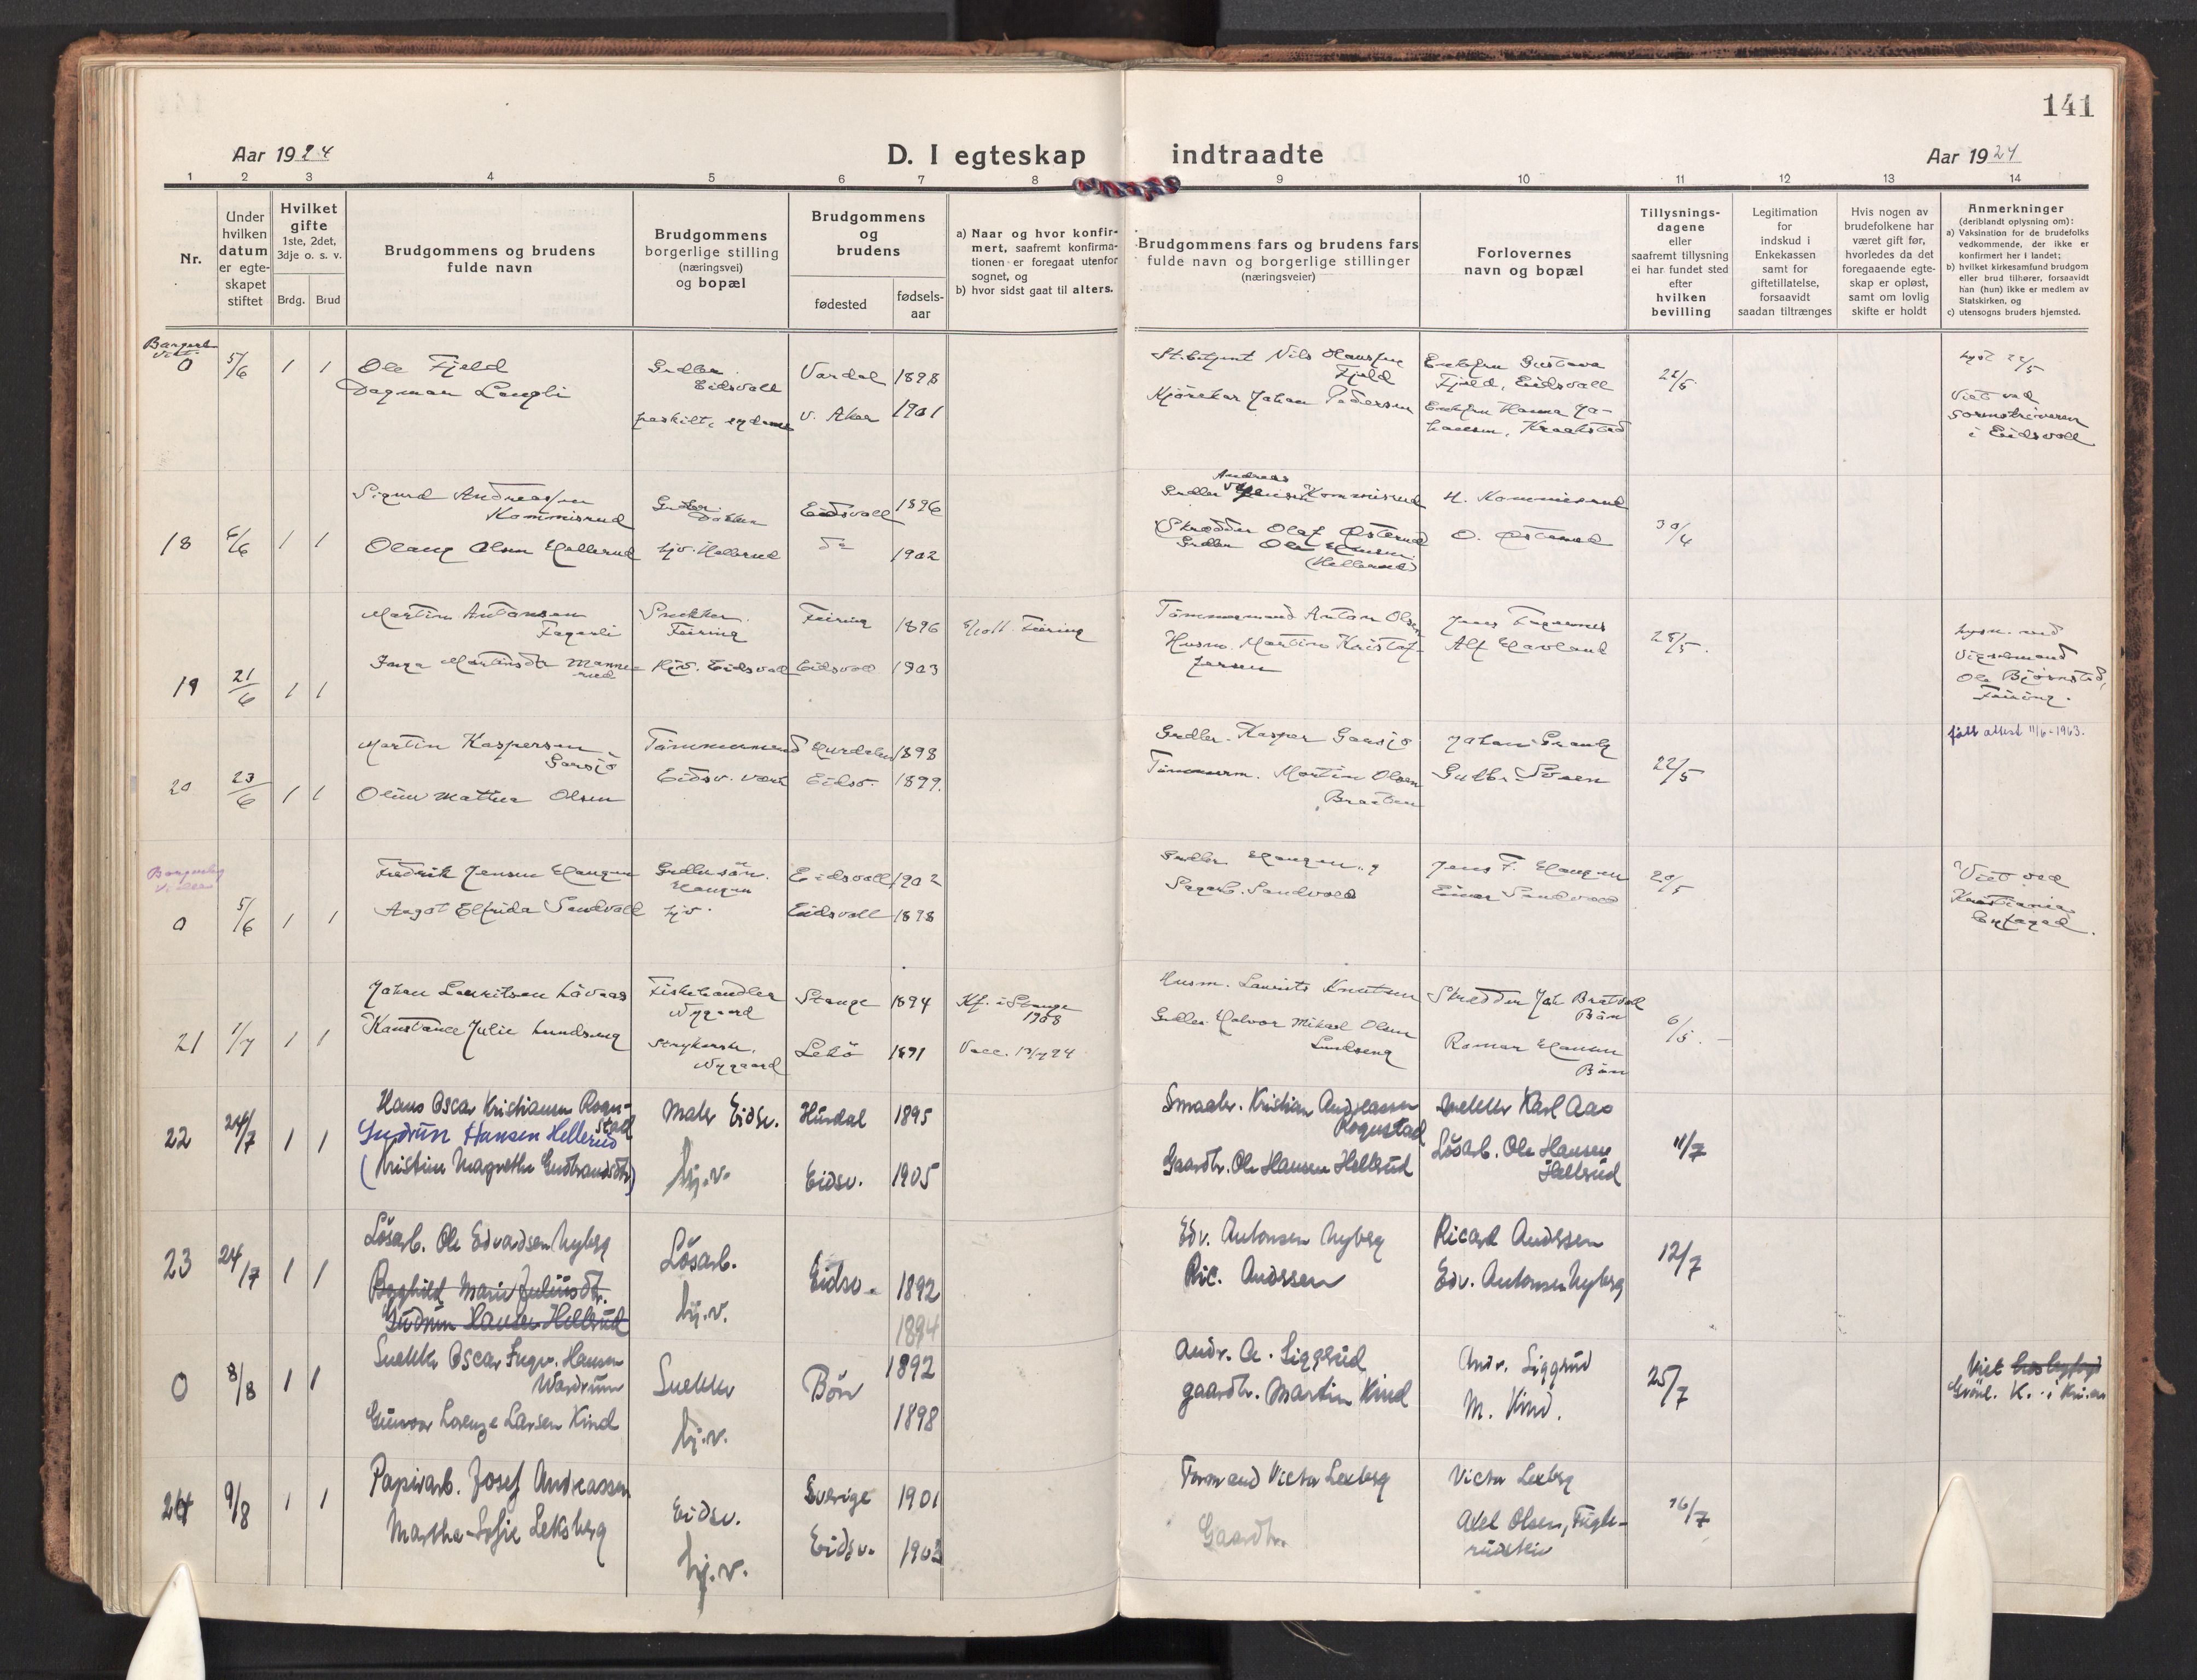 141
Aar 1924
D. I egteskap indtraadte
Aar 1924
1 2 3 4 5 6 7 8 9 10 11 12 13 14
Nr.
Under
hvilken
datum
er egte-
skapet
stiftet
Hvilket
gifte
1ste, 2det,
3dje o. s. v.
Brdg. Brud
Brudgommens og brudens
fulde navn
Brudgommens
borgerlige stilling
(næringsvei)
og bopæl
Brudgommens
og
brudens
fødested
fødsels-
aar
a) Naar og hvor konfir-
mert, saafremt konfirma-
tionen er foregaat utenfor
sognet, og
b) hvor sidst gaat til alters.
Brudgommens fars og brudens fars
fulde navn og borgerlige stillinger
(næringsveier)
Forlovernes
navn og bopæl
Tillysnings-
dagene
eller
saafremt tillysning
ei har fundet sted
efter
hvilken
bevilling
Legitimation
for
indskud i
Enkekassen
samt for
giftetillatelse,
forsaavidt
saadan tiltrænges
Hvis nogen av
brudefolkene har
været gift før,
hvorledes da det
foregaaende egte-
skap er opløst,
samt om lovlig
skifte er holdt
Anmerkninger
(deriblandt oplysning om):
a) Vaksination for de brudefolks
vedkommende, der ikke er
konfirmert her i landet;
b) hvilket kirkesamfund brudgom
eller brud tilhører, forsaavidt
han (hun) ikke er medlem av
Statskirken, og
c) utensogns bruders hjemsted.
0 5/6 1 1
Ole Fjeld
Dagmar Langli
Eidsvoll
Vardal 1898
V. Aker 1901
Nils Olaussen
Fjeld
Johan Pedersen
Gustava
Fjeld, Eidsvoll
Hanna Jo-
hansen, Kraakstad
Viet ved
Sorenskriveren
i Eidsvoll
18 6/6 1 1
Sigurd Andreassen
Kommisrud
Olaug Olsen Hellerud
hjv. Hellerud
Eidsvoll 1896
do 1902
Andreas
Kommisrud
Skrædder Olaf Østerud
Grdbr. Ole Hansen
(Hellerud)
H. Kommisrud
O. Østerud
30/4
19 21/6 1 1
Martin Antonsen
Fagerli
Inga Martinsdtr Manne-
rud
Snekker
Feiring
Hjv. Eidsvoll
Feiring 1896
Eidsvoll 1903
Feiring
Tømmermand Anton Olsen
Husm. Martin Kristof-
fersen
Jens Fagernes
Alf Havland
25/5
Ole Bjørnstad,
Feiring.
20 23/6 1 1
Martin Kaspersen
Garsjø
Oline Mathea Olsen
Tømmermand
Eidsv. værk
Hurdalen 1898
Eidsv. 1899.
Grdbr. Kasper Garsjø
Tømmerm. Martin Olsen
Braaten
Johan
Gulbr. Svæen
22/5
født attest 11/6-1963.
0 5/6 1 1
Fredrik Jensen Haugen
Aagot Elfrida Sandvold
Haugen
hjv.
Eidsvoll 1902
Eidsvoll 1898
Grdbr. Haugen
Sagarb. Sandvold
Jens F. Haugen
Einar Sandvold
20/5
Viet ved
Kristiania
Byfoged.
21 1/7 1 1
Johan Lauritsen Løvaas
Konstance Julie Lundseng
Fiskehandler
Nygaard
Nygaard
Stange 1894
Lekø 1891
Kf. i Stange
1908
Husm. Laurits Knutsen
Grdbr. Halvor Mikael Olsen
Lundseng
Skrædder Joh Bratvold
Bøn
Ragnar Hansen
Bøn
6/5.
22 24/7 1 1
Hans Oscar Kristiansen Rogn-
stad
Gudrun Hansen Hellerud
(Kristine Magnethe Gudbrandsdtr)
Maler Eidsv.
hj.v.
Hurdal 1895
Eidsv. 1905
Smaabr. Kristian Andreassen
Rognstad
Gaardbr. Ole Hansen Hellerud
Snekker Karl Aas
Løsarb. Ole Hansen
Hellerud
11/7
23 24/7 1 1
Løsarb. Ole Edvardsen Nyberg
Borghild Marie Juliusdtr.
Gudrun Hansen Hellerud
Løsarb.
hj.v.
Eidsv. 1892
1894
Edv. Antonsen Nyberg
Ric. Andersen
Ricard Andersen
Edv. Antonsen Nyberg
12/7
0 8/8 1 1
Snekker Oscar Ingv. Hansen
Wardrum
Gunvor Lorenze Larsen Kind
Snekker
hj.v.
Bøn 1892
1898
Andr. A. Liggerud
gaardbr. Martin Kind
Andr. Liggrud
M. Kind.
25/7
Viet
Grønl. K. i Kri.an
24 9/8 1 1
Papirarb. Josef Andreassen
Martha-Sofie Leksberg
Eidsv.
hj.v.
Sverige 1901
Eidsv. 1903
Formand Victor Lexberg
Gaardbr.
Victor Lexberg
Axel Olsen, Fugle-
16/7